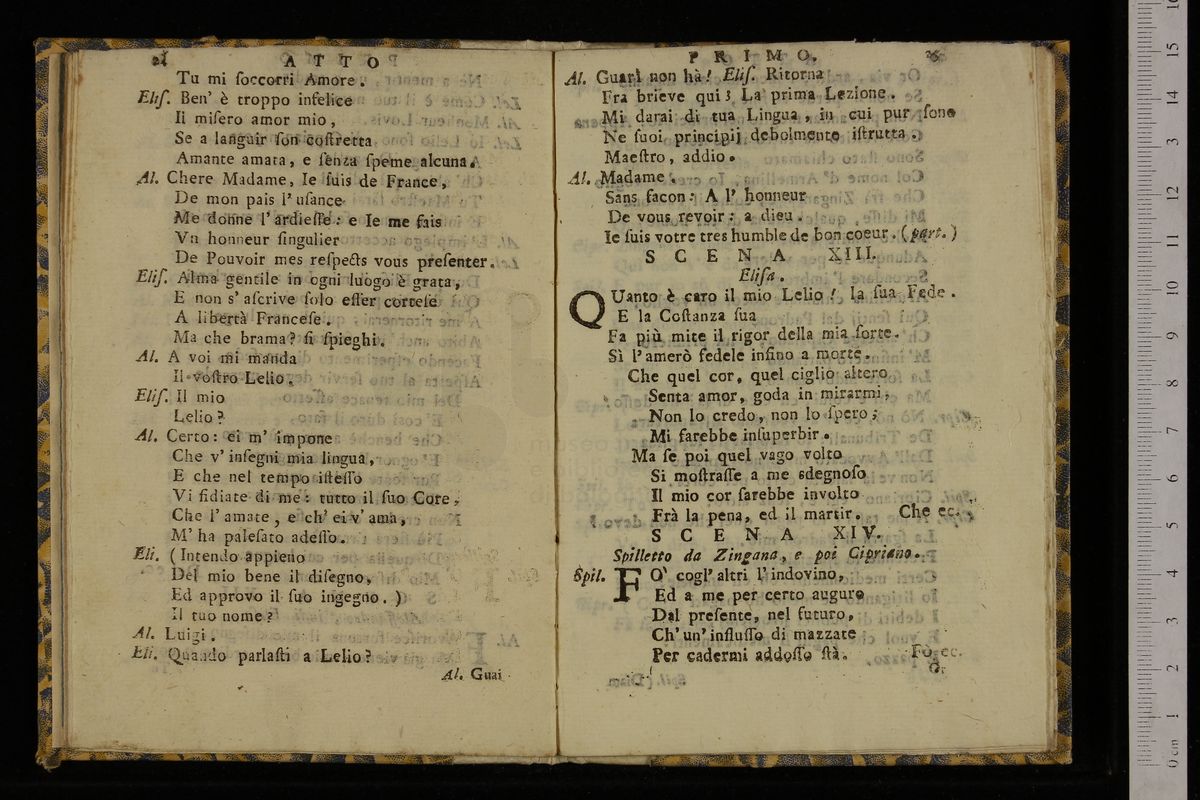 ATTO
Tu mi ſoccorri Amore.
Eliſ. Ben' è troppo infelice
Il miſero amor mio,
Se a languir ſon coſtretta
Amante amata, e ſenza ſpeme alcuna.
Al. Chere Madame, Ie ſuis de France,
De mon pais l' uſance
Me donne l' ardieſſe: e Ie me fais
Vn honneur ſingulier
De Pouvoir mes reſpects vous preſenter.
Eliſ. Alma gentile in ogni luogo è grata,
E non s' aſcrive ſolo eſſer corteſe
A libertà Franceſe.
Ma che brama? ſi ſpieghi.
Al. A voi mi manda
Il voſtro Lelio.
Eliſ. Il mio
Lelio?
Al. Certo: ei m' impone
Che v' inſegni mia lingua,
E che nel tempo iſteſſo
Vi fidiate di me: tutto il ſuo Core,
Che l' amate, e ch' ei v' ama,
M' ha paleſato adeſſo.
Eli. (Intendo appieno
Del mio bene il diſegno,
Ed approvo il ſuo ingegno.)
Il tuo nome?
Al. Luigi.
Eli. Quando parlaſti a Lelio?
Al. Guai
PRIMO.
Al. Guari non hà! Eliſ. Ritorna
Fra brieve qui; La prima Lezione.
Mi darai di tua Lingua, in cui pur ſono
Ne ſuoi principij debolmente iſtrutta.
Maeſtro, addio.
Al. Madame.
Sans facon: A l' honneur
De vous revoir: a dieu.
Ie ſuis votre tres humble de bon coeur. (part.)
SCENA XIII.
Eliſa.
QUanto è caro il mio Lelio! la ſua Fede.
E la Coſtanza ſua
Fa più mite il rigor della mia ſorte.
Sì l' amerò fedele inſino a morte.
Che quel cor, quel ciglio altero
Senta amor, goda in mirarmi,
Non lo credo, non lo ſpero;
Mi farebbe inſuperbir.
Ma ſe poi quel vago volto
Si moſtraſſe a me sdegnoſo
Il mio cor ſarebbe involto
Frà la pena, ed il martir. Che ec.
SCENA XIV.
Spilletto da Zingana, e poi Cipriano.
Spil. FO' cogl' altri l' indovino,
Ed a me per certo auguro
Dal preſente, nel futuro,
Ch' un' influſſo di mazzate
Per cadermi addoſſo ſtà. Fo ec.